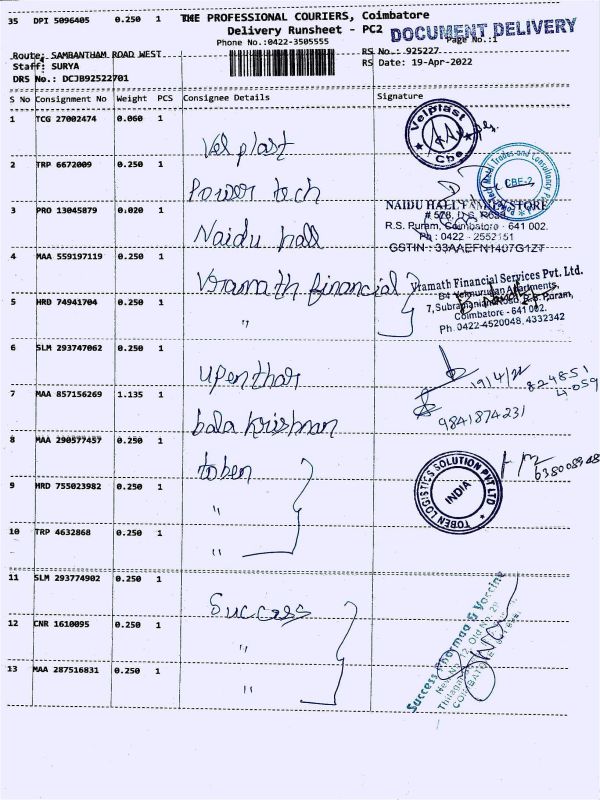 35 DPI 5096405 0.250 1 THE PROFESSIONAL COURIERS, Coimbatore
Delivery Runsheet - PC2
DOCUMENT DELIVERY
Phone No.:0422-3505555
Page No.:1
Route: SAMBANTHAM ROAD WEST
RS No.: 925227
Staff: SURYA
RS Date: 19-Apr-2022
DRS No.: DCJB92522701
S No Consignment No Weight PCS Consignee Details Signature
1 TCG 27002474 0.060 1
Vel plast
Velplast
Cbe
2 TRP 6672009 0.250 1
Power tech
CBE-2
3 PRO 13045879 0.020 1
Naidu hall
NAIDU HALL FAMILY STORE
# 578, D.B. Road
R.S. Puram, Coimbatore - 641 002.
Ph : 0422 - 2552151
GSTIN : 33AAEFN1407G1Z7
4 MAA 559197119 0.250 1
Vramath financial
Vramath Financial Services Pvt. Ltd.
5 HRD 74941704 0.250 1
"
Coimbatore - 641 002.
Ph. 0422-4520048, 4332342
6 SLM 293747062 0.250 1
upenthar
19/4/22
7 MAA 857156269 1.135 1
bala krishnan
9841874231
8 MAA 290577457 0.250 1
toben
TOBEN LOGISTICS SOLUTION PVT LTD
INDIA
9 HRD 755023982 0.250 1
"
10 TRP 4632868 0.250 1
"
11 SLM 293774902 0.250 1
Success
Success Pharmaa & Vaccine
12 CNR 1610095 0.250 1
"
13 MAA 287516831 0.250 1
"